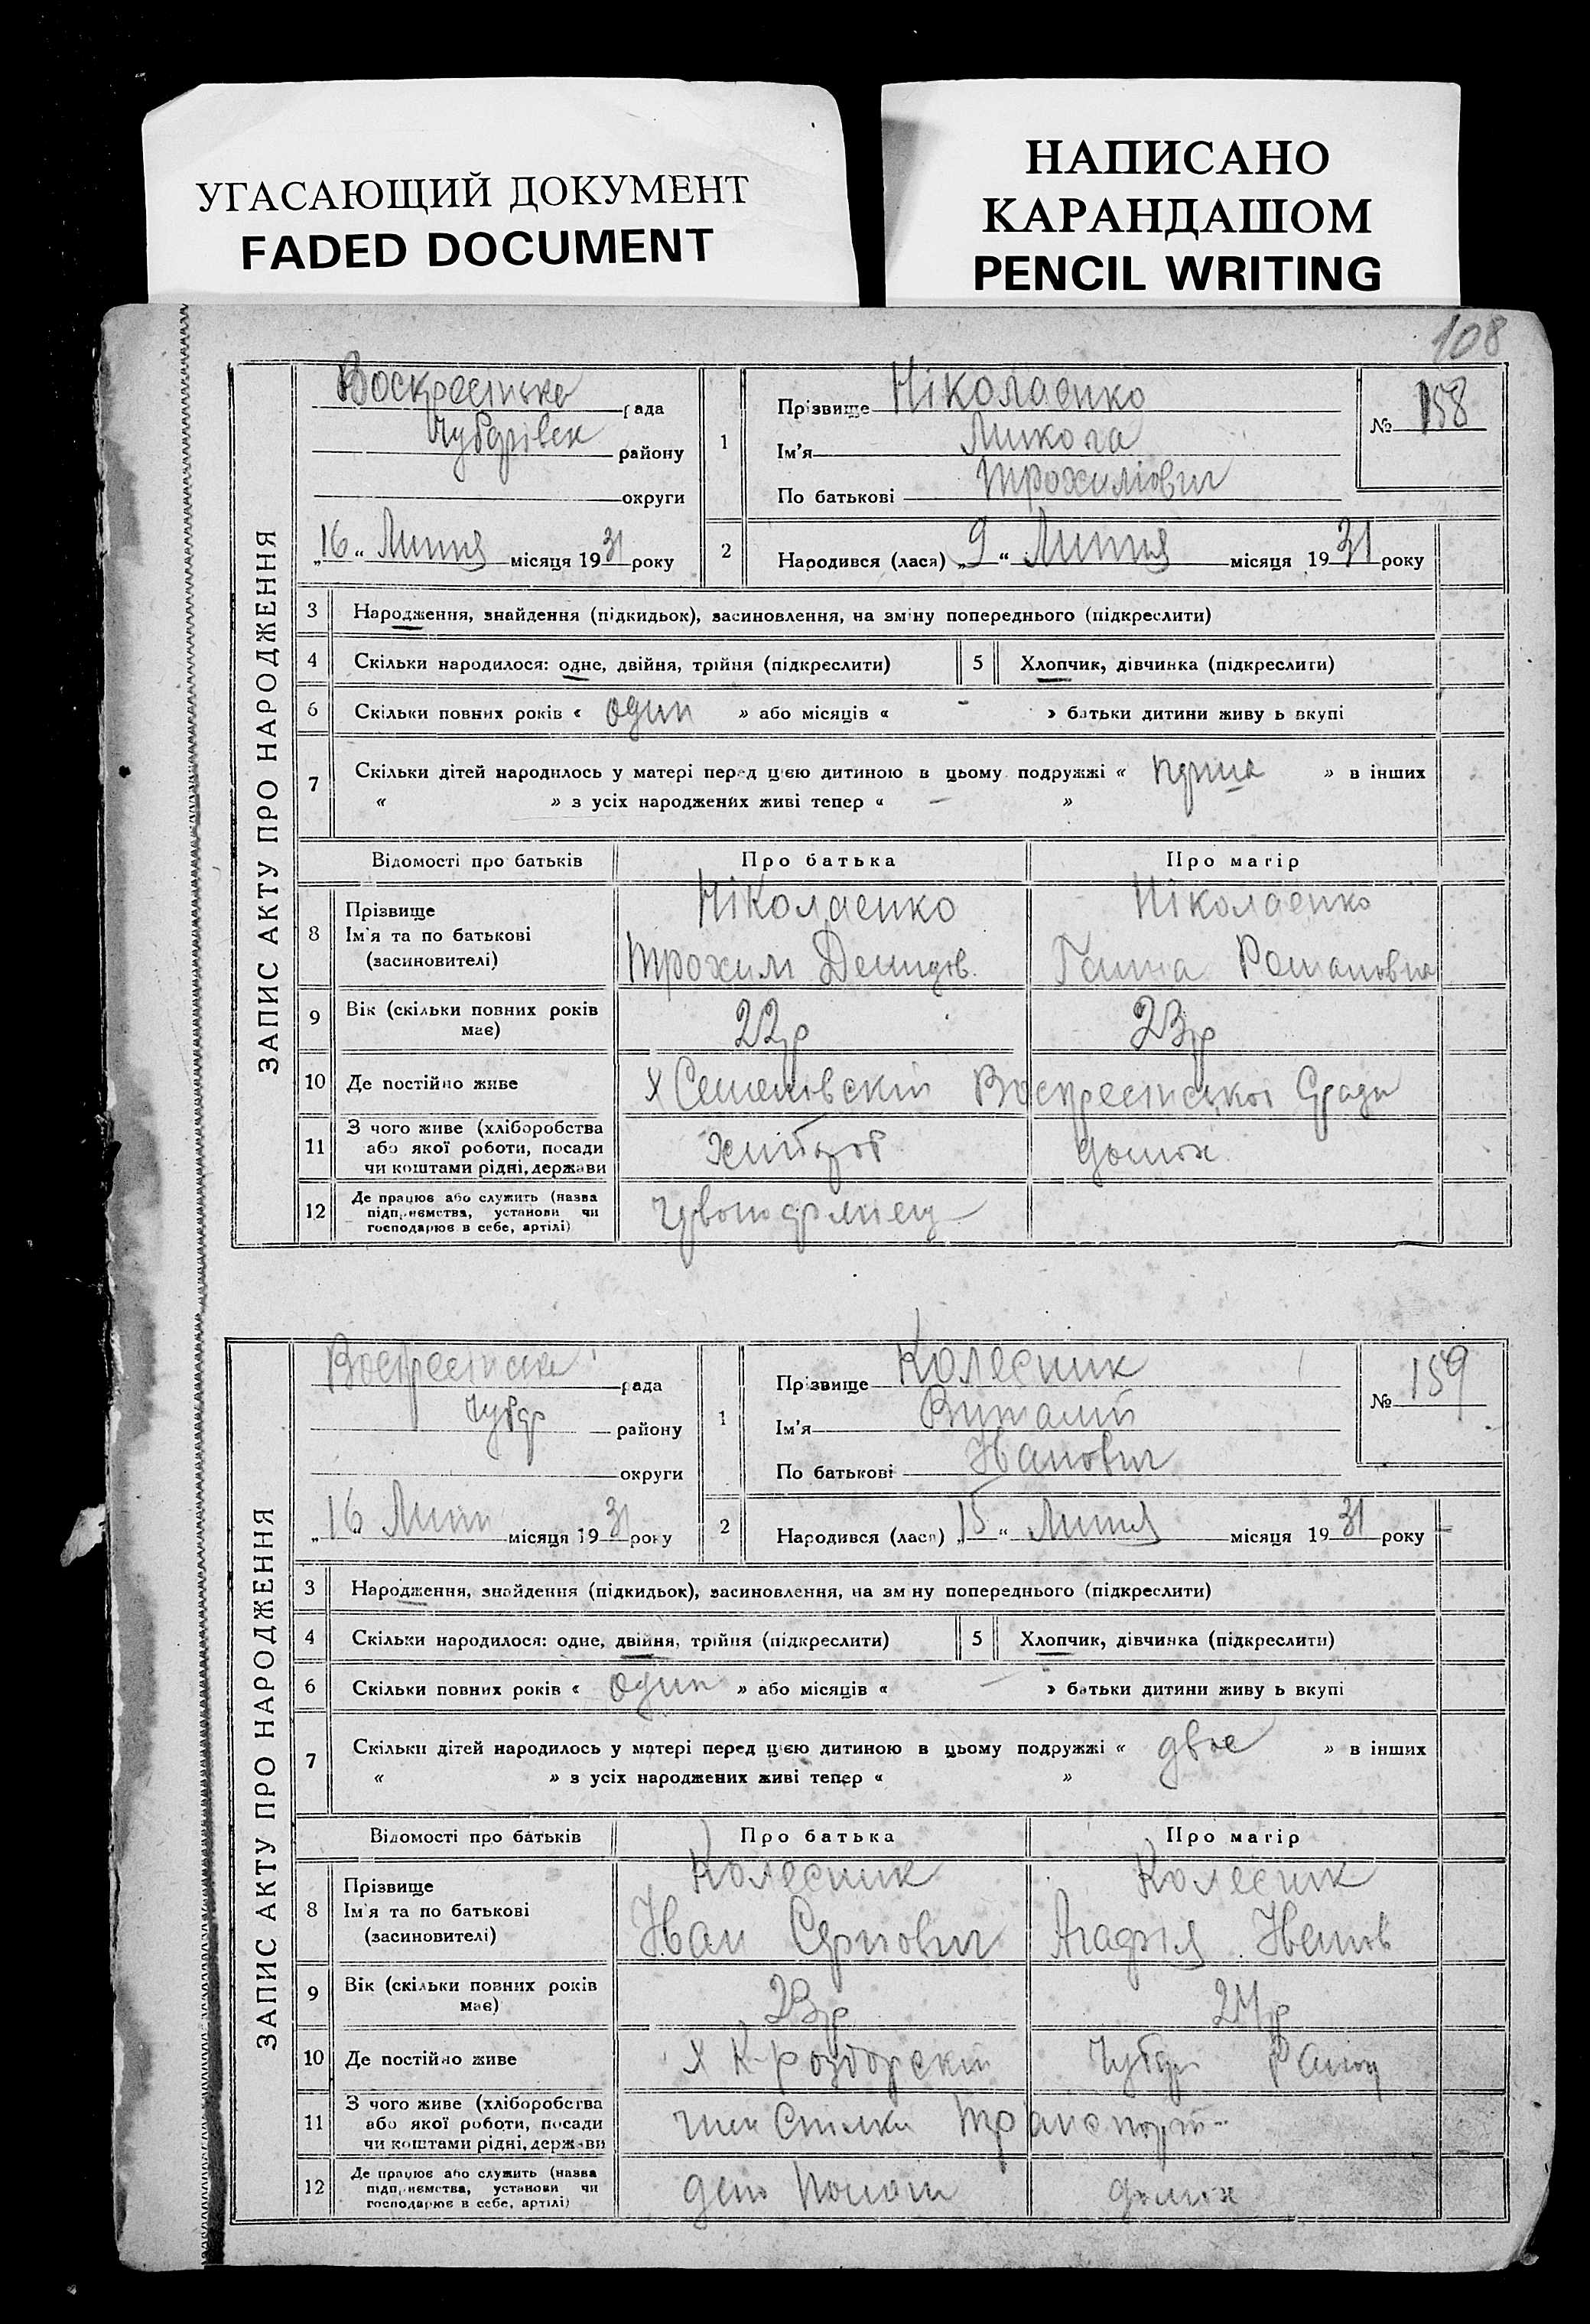 УГАСАЮЩИЙ ДОКУМЕНТ
FADED DOCUMENT
НАПИСАНО
КАРАНДАШОМ
PENCIL WRITING
108
ЗАПИС АКТУ ПРО НАРОДЖЕННЯ
рада
району
округи
„16“ Липня місяця 1931 року
1
Прізвище Ніколаенко
Ім'я Микола
По батькові Трохимович
№ 158
2
Народився (лася) „9“ Липня місяця 1931 року
3 Народження, знайдення (підкидьок), засиновлення, на зміну попереднього (підкреслити)
4 Скільки народилося: одне, двійня, трійня (підкреслити) 5 Хлопчик, дівчинка (підкреслити)
6 Скільки повних років « один » або місяців « - » батьки дитини живу ь вкупі
7 Скільки дітей народилось у матері перед цією дитиною в цьому подружжі « » в інших
« » з усіх народжених живі тепер « — »
Відомості про батьків Про батька Про матір
8 Прізвище
Ім'я та по батькові
(засиновителі)
Ніколаенко Ніколаенко
Трохим Демидов. Ганна Романовна
9 Вік (скільки повних років має) 22р 23р
10 Де постійно живе Х
11 З чого живе (хліборобства
або якої роботи, посади
чи коштами рідні, держави
домох.
12 Де працює або служить (назва
підприємства, установи чи
господарює в себе, артілі)
ЗАПИС АКТУ ПРО НАРОДЖЕННЯ
рада
Чубар району
округи
„16 Липн місяця 1931 року
1
Прізвище Колесник
Ім'я Виталий
По батькові Іванович
№ 159
2
Народився (лася) „15“ Липня місяця 1931 року
3 Народження, знайдення (підкидьок), засиновлення, на зм ну попереднього (підкреслити)
4 Скільки народилося: одне, двійня, трійня (підкреслити) 5 Хлопчик, дівчинка (підкреслити)
6 Скільки повних років « один » або місяців « — » батьки дитини живу ь вкупі
7 Скільки дітей народилось у матері перед цією дитиною в цьому подружжі « двое » в інших
« » з усіх народжених живі тепер « »
Відомості про батьків Про батька Про матір
8 Прізвище
Ім'я та по батькові
(засиновителі)
Колесник Колесник
Іван
9 Вік (скільки повних років має) 23р 24р
10 Де постійно живе Х Чубар
11 З чого живе (хліборобства
або якої роботи, посади
чи коштами рідні, держави
член Спілки Транспорт
12 Де працює або служить (назва
підприємства, установи чи
господарює в себе, артілі)
домох